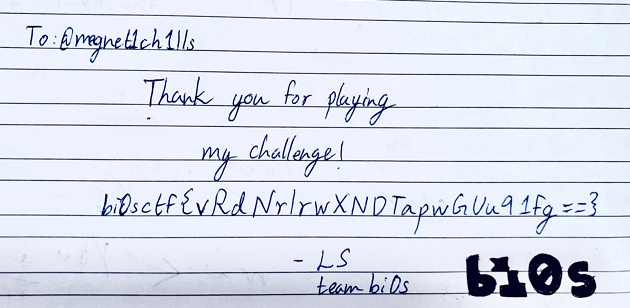 To: @magnet1ch1lls
Thank you for playing
my challenge!
bi0sctf{vRdNrlrwXNDTapwGVu91fg==}
- LS
team bi0s
bi0s